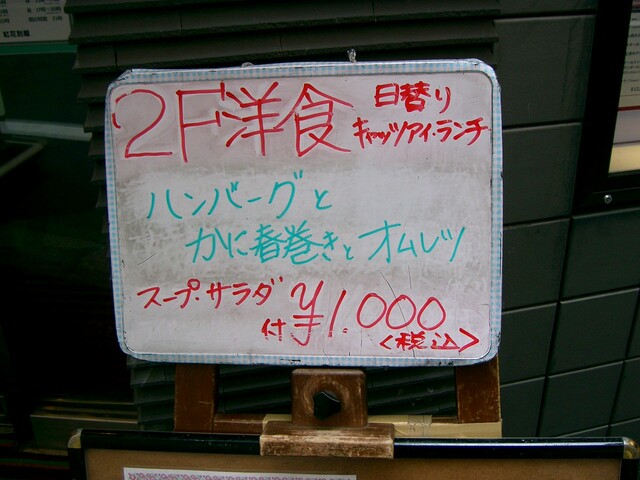 2F洋食 日替り
キャッツアイ・ランチ
ハンバーグと
かに春巻きとオムレツ
スープ・サラダ付 ¥1.000
<税込>